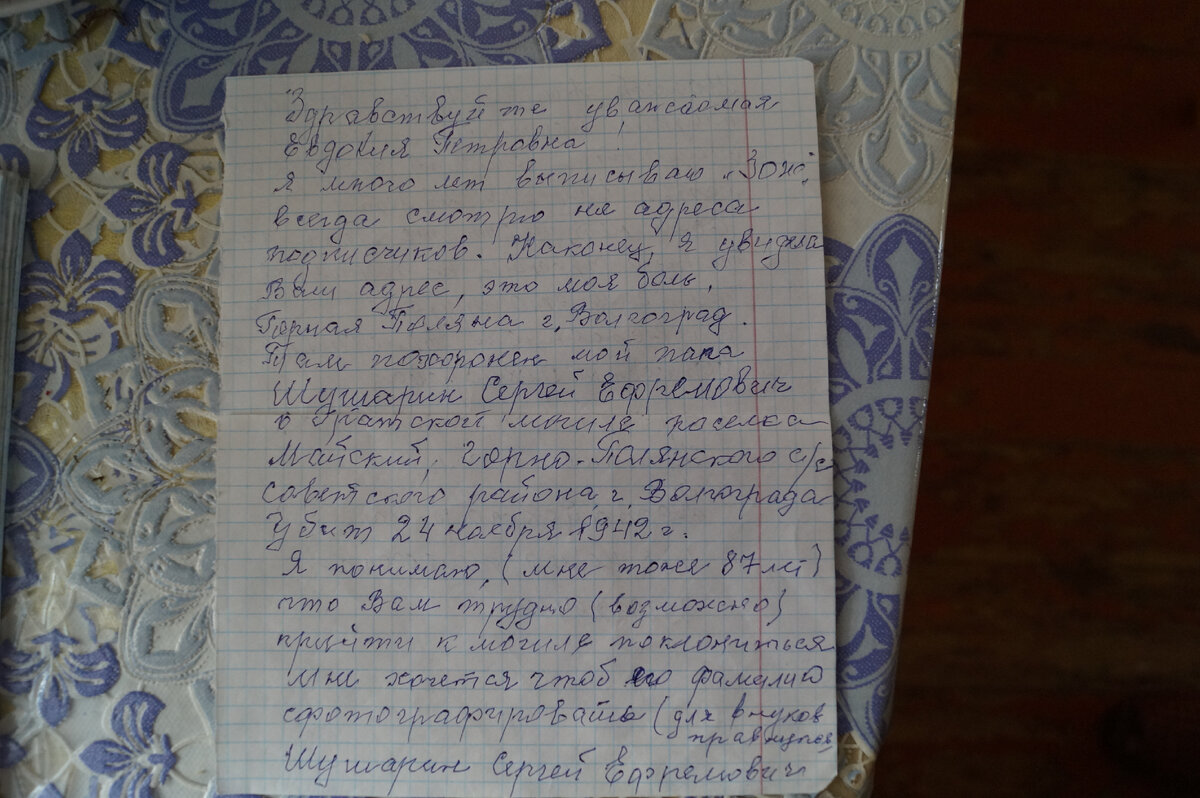 Здравствуйте уважаемая
Евдокия Петровна!
Я много лет выписываю „Зож"
всегда смотрю на адреса
подписчиков. Наконец, я увидела
Ваш адрес, это моя боль,
Горная Поляна г. Волгоград.
Там похоронен мой папа
Шушарин Сергей Ефремович
в братской могиле поселка
Майский, Горно-Полянского с/с
советского района, г. Волгограда
Убит 24 ноября 1942 г.
Я понимаю, (мне тоже 87 лет)
что Вам трудно (возможно)
прийти к могиле поклониться
мне хочется чтоб его фамилию
сфотографировать (для внуков
правнуков
Шушарин Сергей Ефремович